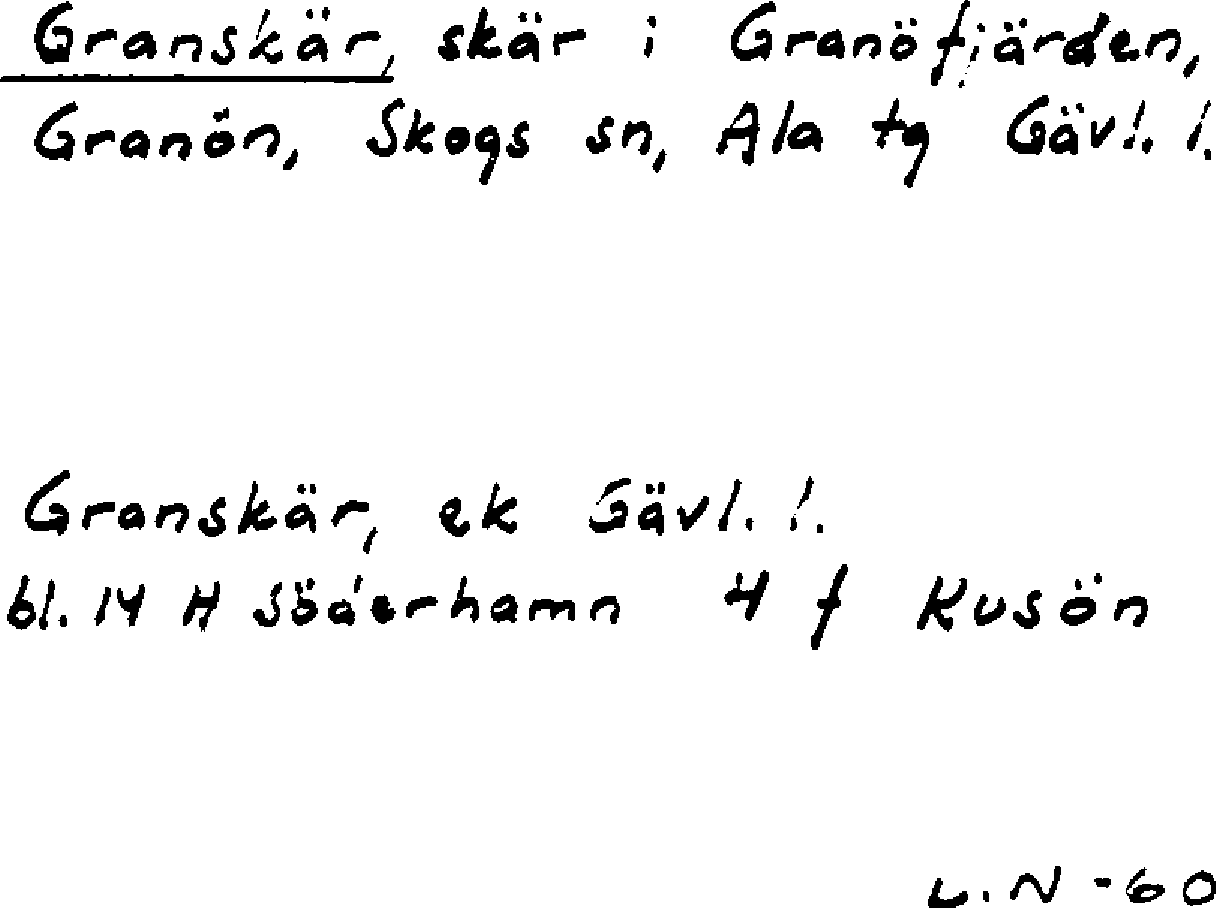 Granskär, skär i Granöfjärden,
Granön, Skogs sn, Ala tg Gävl. l.
Granskär, ek Gävl. l.
bl. 14 H Söderhamn 4 f Kusön
L. N -60